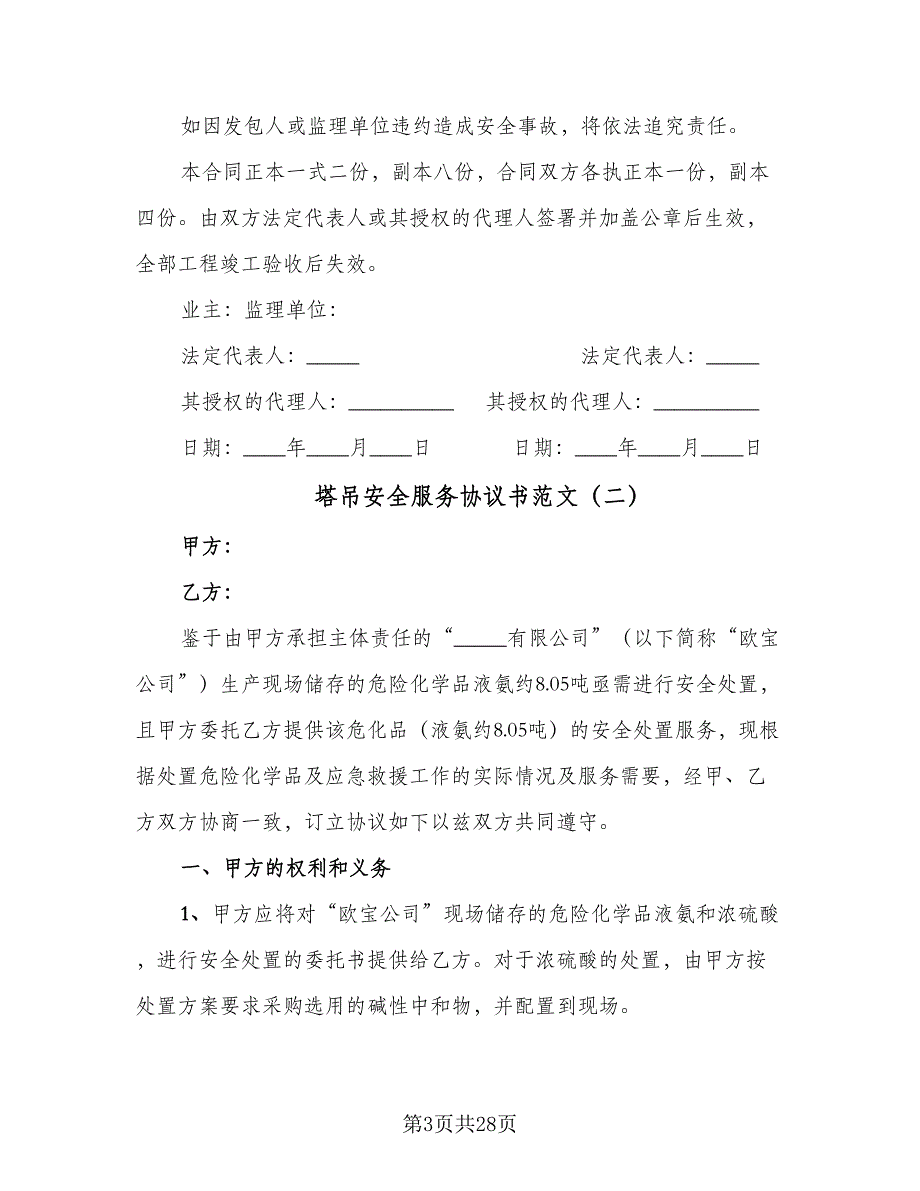 如因发包人或监理单位违约造成安全事故，将依法追究责任。
本合同正本一式二份，副本八份，合同双方各执正本一份，副本
四份。由双方法定代表人或其授权的代理人签署并加盖公章后生效，
全部工程竣工验收后失效。
业主：监理单位：
法定代表人：_____ 法定代表人：_____
其授权的代理人：__________ 其授权的代理人：__________
日期：____年____月____日 日期：____年____月____日
塔吊安全服务协议书范文（二）
甲方：
乙方：
鉴于由甲方承担主体责任的“_____有限公司”（以下简称“欧宝
公司”）生产现场储存的危险化学品液氨约8.05吨亟需进行安全处置，
且甲方委托乙方提供该危化品（液氨约8.05吨）的安全处置服务，现根
据处置危险化学品及应急救援工作的实际情况及服务需要，经甲、乙
方双方协商一致，订立协议如下以兹双方共同遵守。
一、甲方的权利和义务
1、甲方应将对“欧宝公司”现场储存的危险化学品液氨和浓硫酸
，进行安全处置的委托书提供给乙方。对于浓硫酸的处置，由甲方按
处置方案要求采购选用的碱性中和物，并配置到现场。
第3页共28页